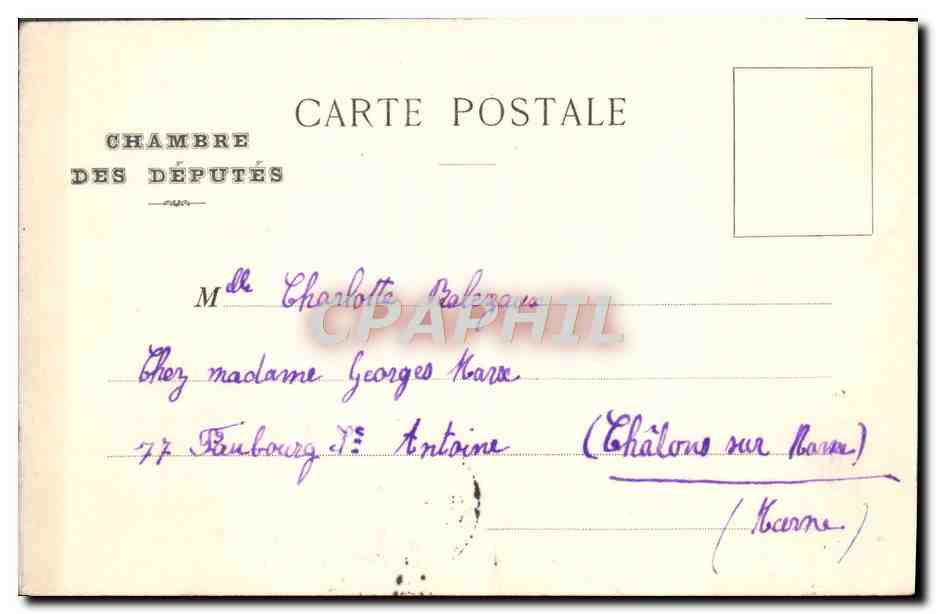 CARTE POSTALE
CHAMBRE
DES DÉPUTÉS
Mdlle Charlotte
CPAPHIL
Chez madame Georges Marx
77 Faubourg St Antoine (Châlons sur Marne)
(Marne)